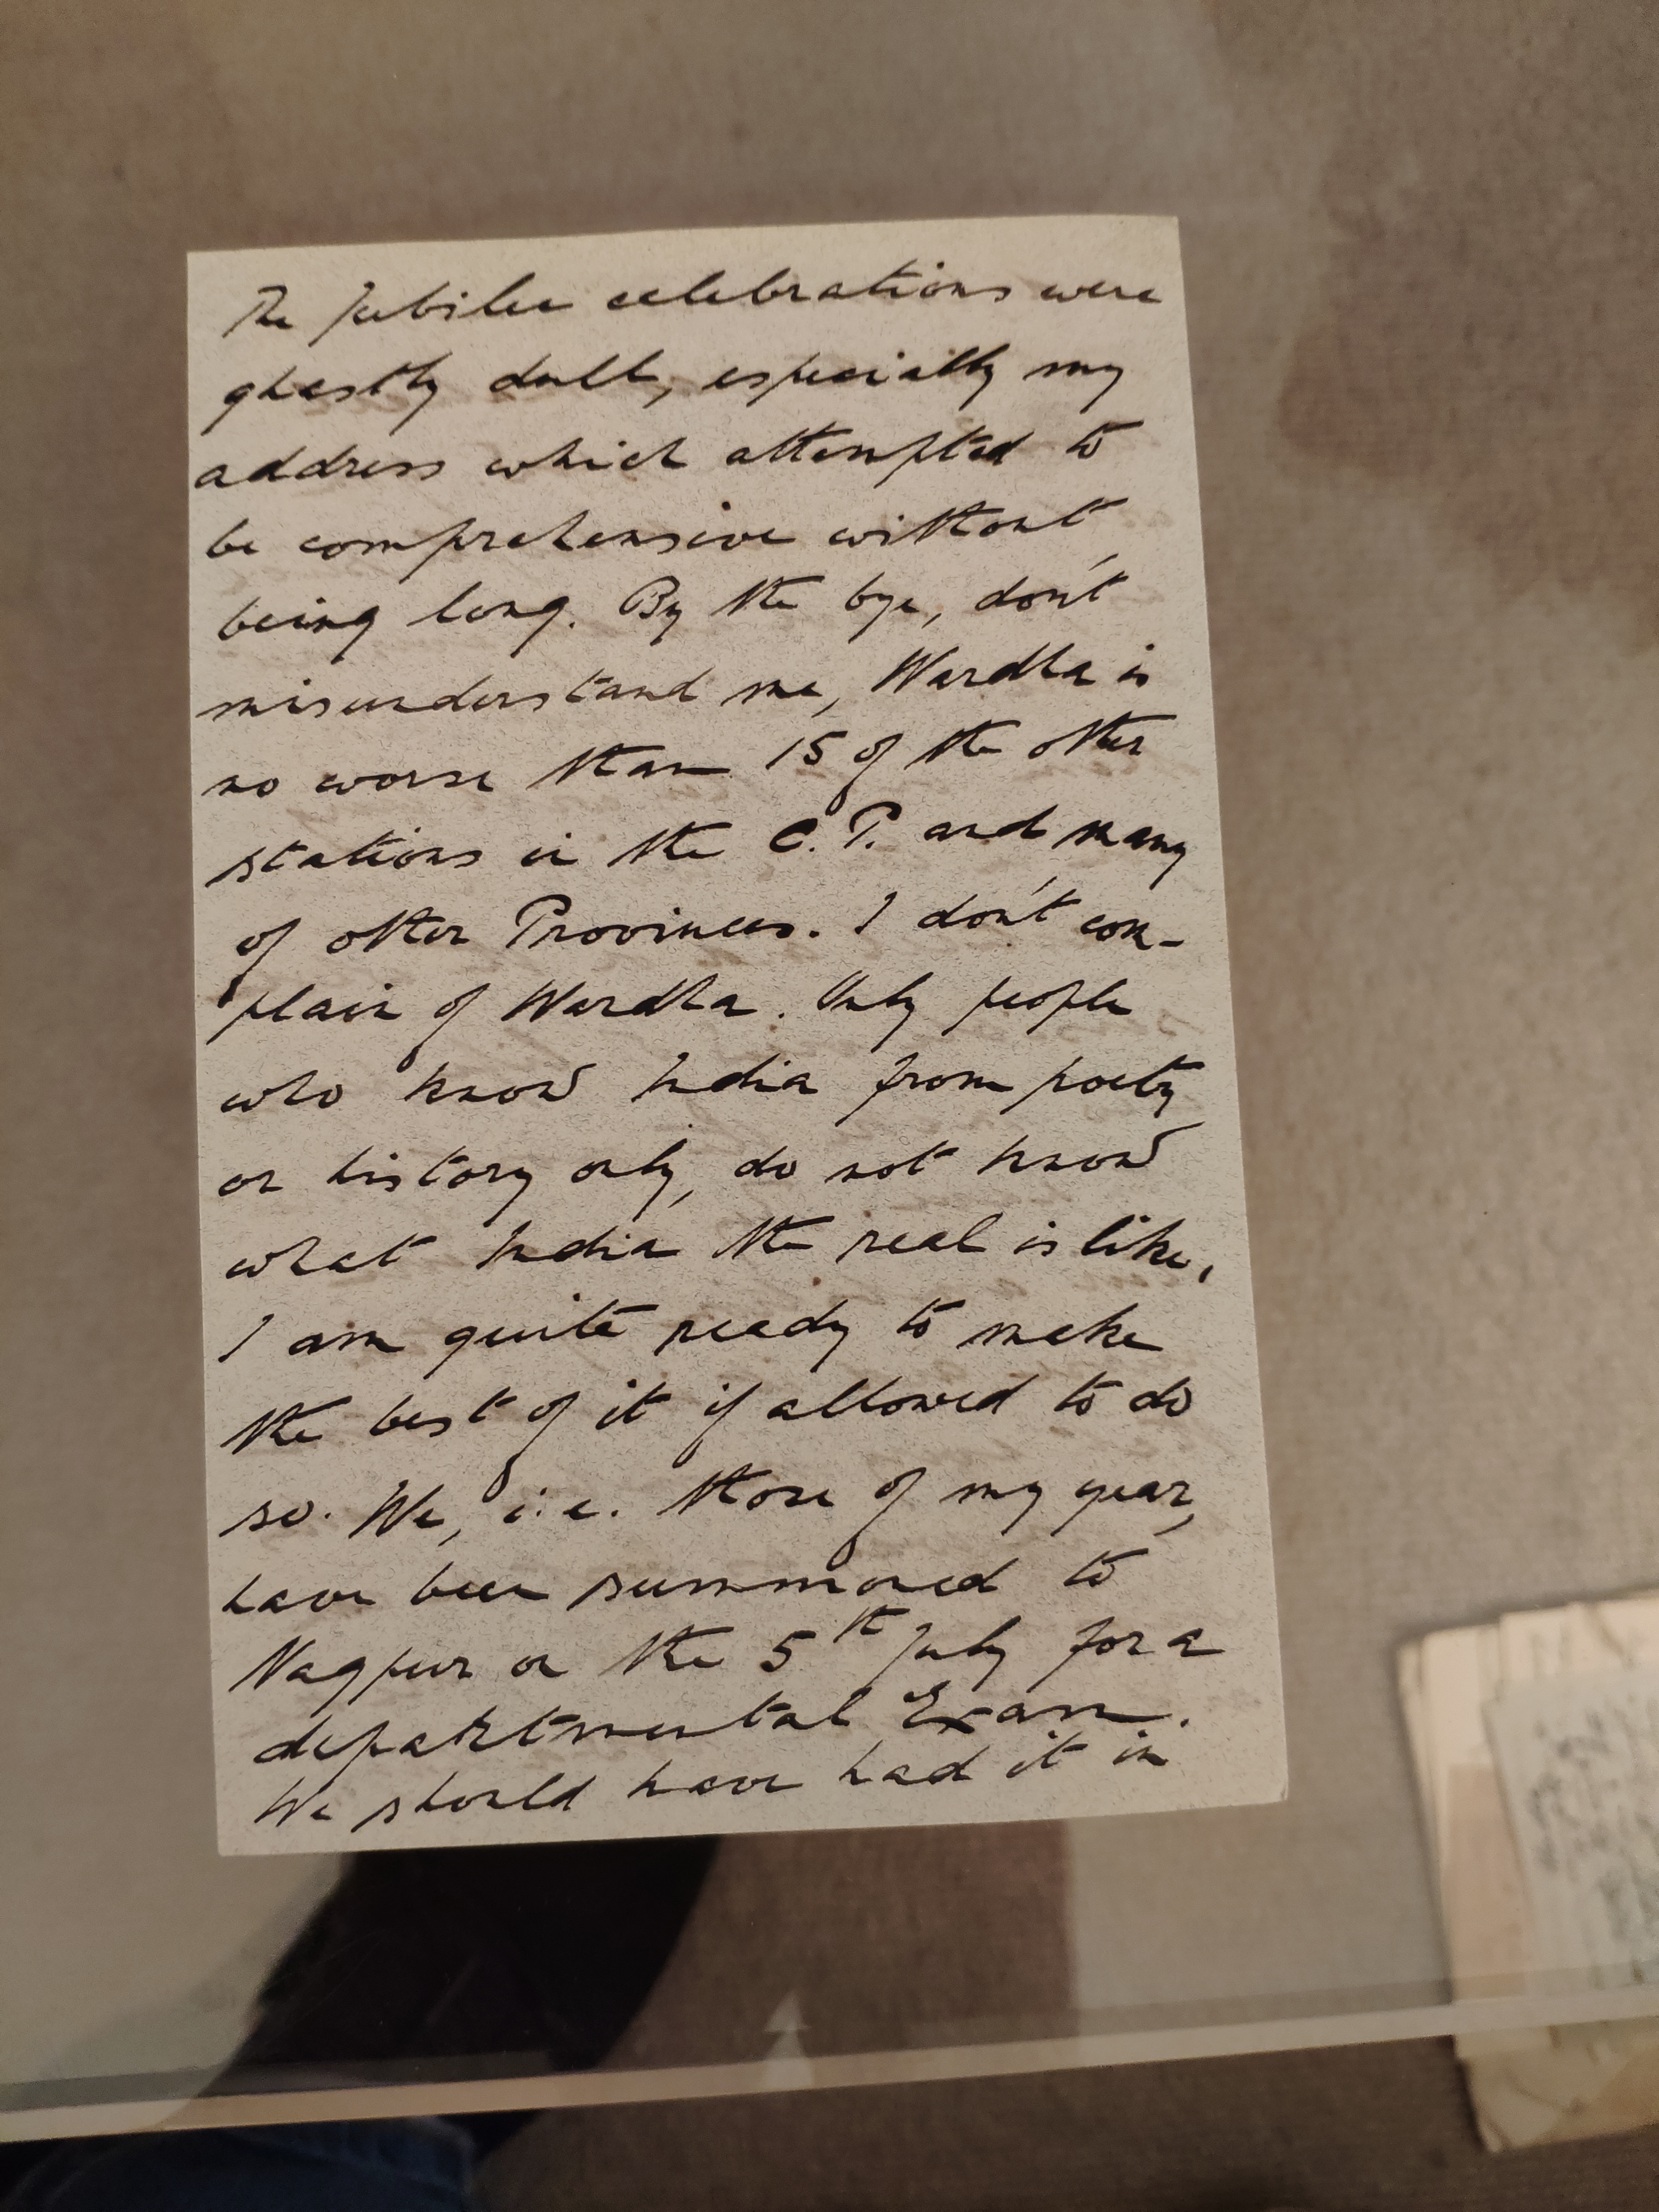 The Jubilee celebrations were
ghastly dull, especially my
address which attempted to
be comprehensive without
being long. By the bye, don't
misunderstand me, Wardha is
no worse than 15 of the other
stations in the C.P. and many
of other Provinces. I don't com-
plain of Wardha. Only people
who know India from poetry
or history only, do not know
what India the real is like,
I am quite ready to make
the best of it if allowed to do
so. We, i.e. those of my year,
have been summoned to
Nagpur on the 5th July for a
departmental Exam.
We should have had it in